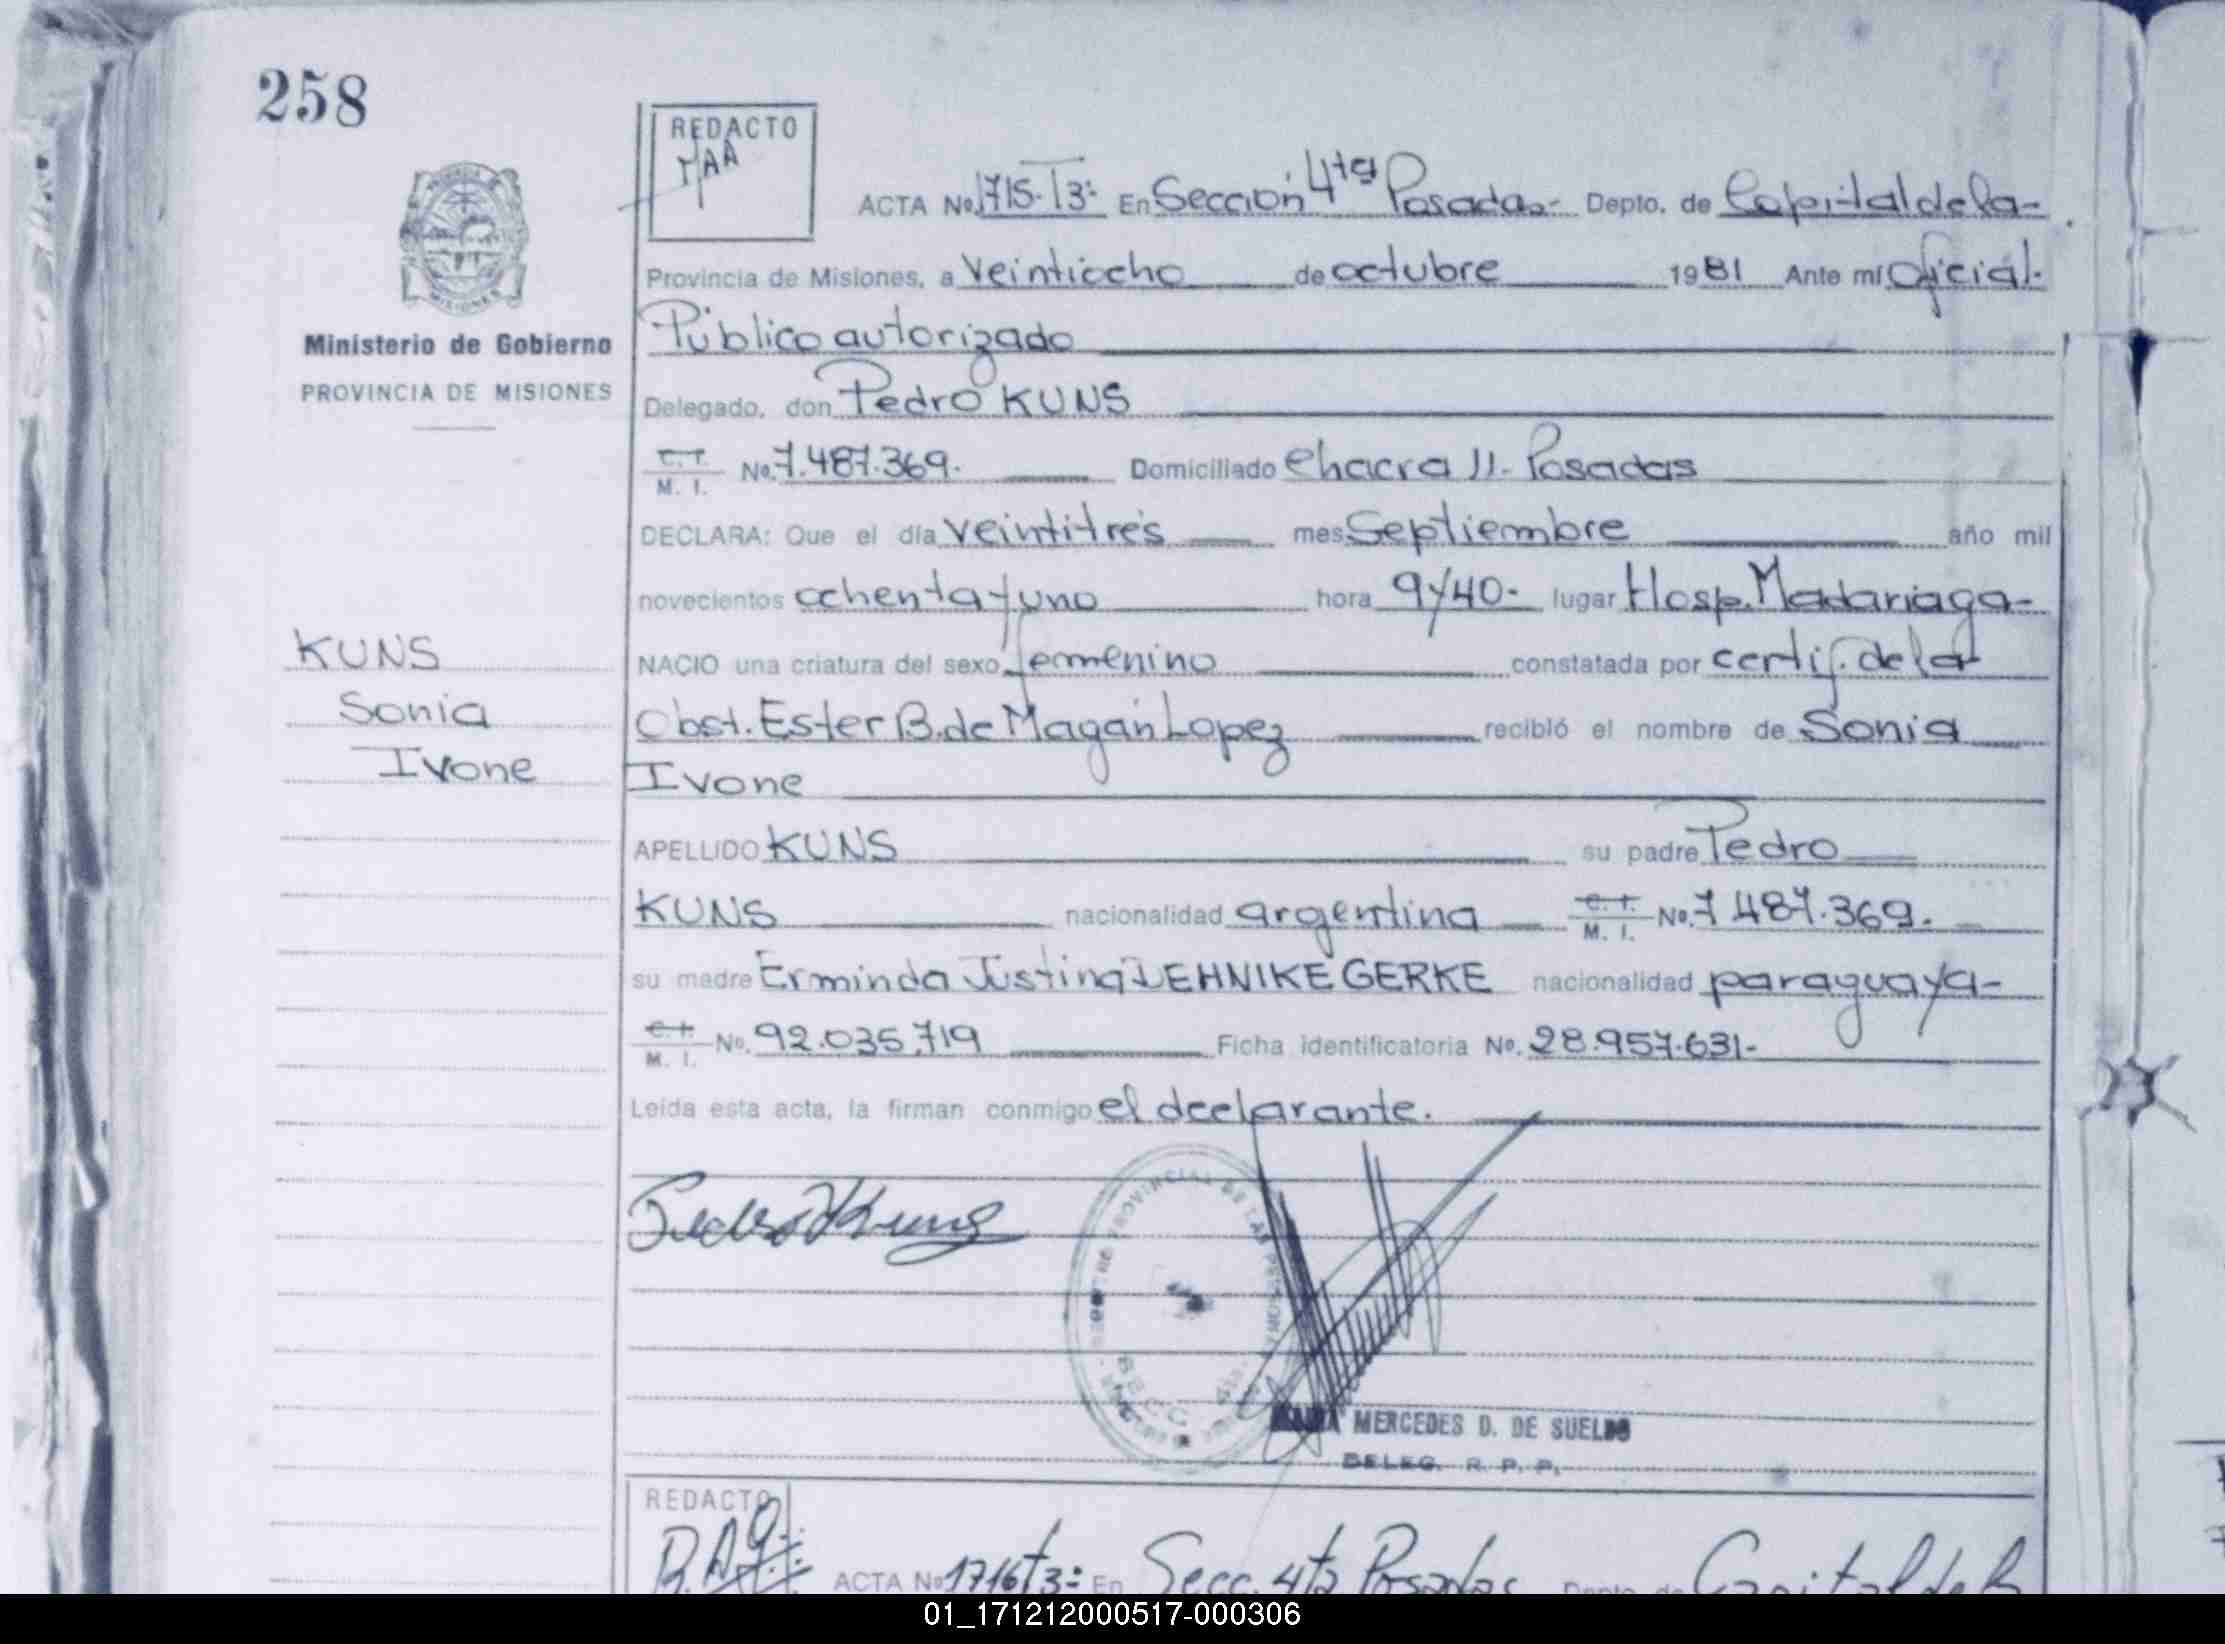 258
REDACTO
ACTA No. 1715. T3: En Sección 4ta Posadas.- Depto. de Capital de la-
Provincia de Misiones, a Veintiocho de octubre 1981 Ante mí Oficial.
Público autorizado
Ministerio de Gobierno
PROVINCIA DE MISIONES
Delegado, don Pedro KUNS
C. I. M. I. No. 7.487.369. Domiciliado Chacra 11. Posadas
DECLARA: Que el día Veintitrés mes Septiembre año mil
novecientos ochenta y uno hora 9y40. lugar Hosp. Madariaga-
KUNS
Sonia
Ivone
NACIO una criatura del sexo femenino constatada por certif. de la
Obst. Ester B. de Magán Lopez recibió el nombre de Sonia
Ivone
APELLIDO KUNS su padre Pedro
KUNS nacionalidad argentina C. I. M. I. No. 7.487.369.
su madre Erminda Justina DEHNIKE GERKE nacionalidad paraguaya-
C. I. M. I. No. 92.035.719 Ficha identificatoria No. 28.957.631-
Leída esta acta, la firman conmigo el declarante.
Pedro Kuns
MERCEDES D. DE SUELDO
DELEG. R. P. P.
REDACTO
ACTA No 1716 T3: En Secc. 4ta Posadas Depto. de Capital de la
01_171212000517-000306